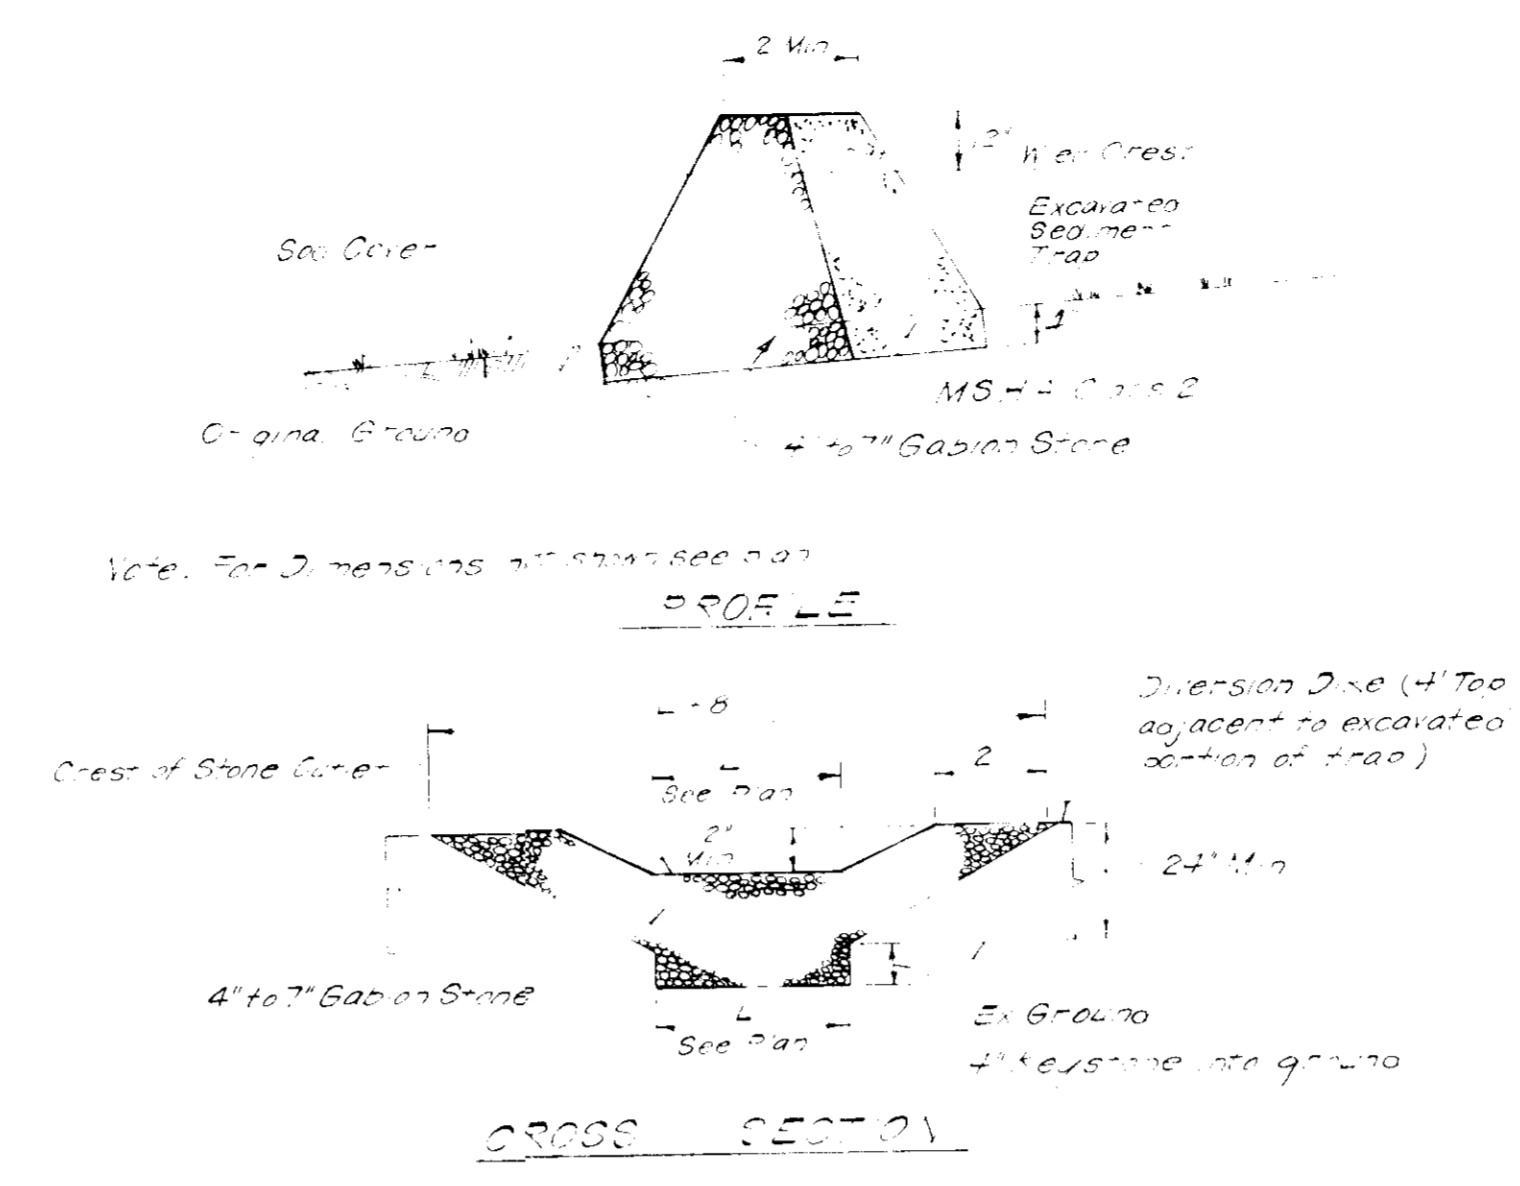 2 Min
12"
Wier Crest
Excavated
Sediment
Trap
Sod Cover
1
MSHA Class 2
Original Ground
4" to 7" Gabion Stone
Note: For Dimensions not shown see plan
PROFILE
L + 8
Diversion Dike (4' Top
adjacent to excavated
portion of trap)
Crest of Stone Outlet
L
See Plan
2
2"
Min
24" Min
4" to 7" Gabion Stone
L
See Plan
Ex Ground
4" Keystone into ground
CROSS SECTION